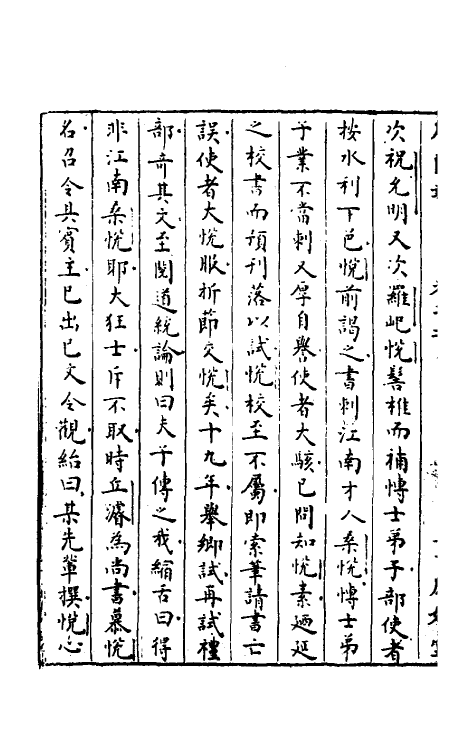 次祝允明又次羅玘悅髫椎而補博士弟子部使者
按水利下邑悅前謁之書刺江南才人桑悅博士弟
子業不當刺又厚自譽使者大駭已問知悅素迺延
之校書而預刊落以試悅校至不屬即索筆請書亡
誤使者大悅服折節交悅矣十九年舉鄉試再試禮
部奇其文至閱道統論則曰夫子傳之我縮舌曰得
非江南桑悅耶大狂士斥不取時丘濬為尚書慕悅
名召令具賓主已出已文令觀紿曰某先輩撰悅心